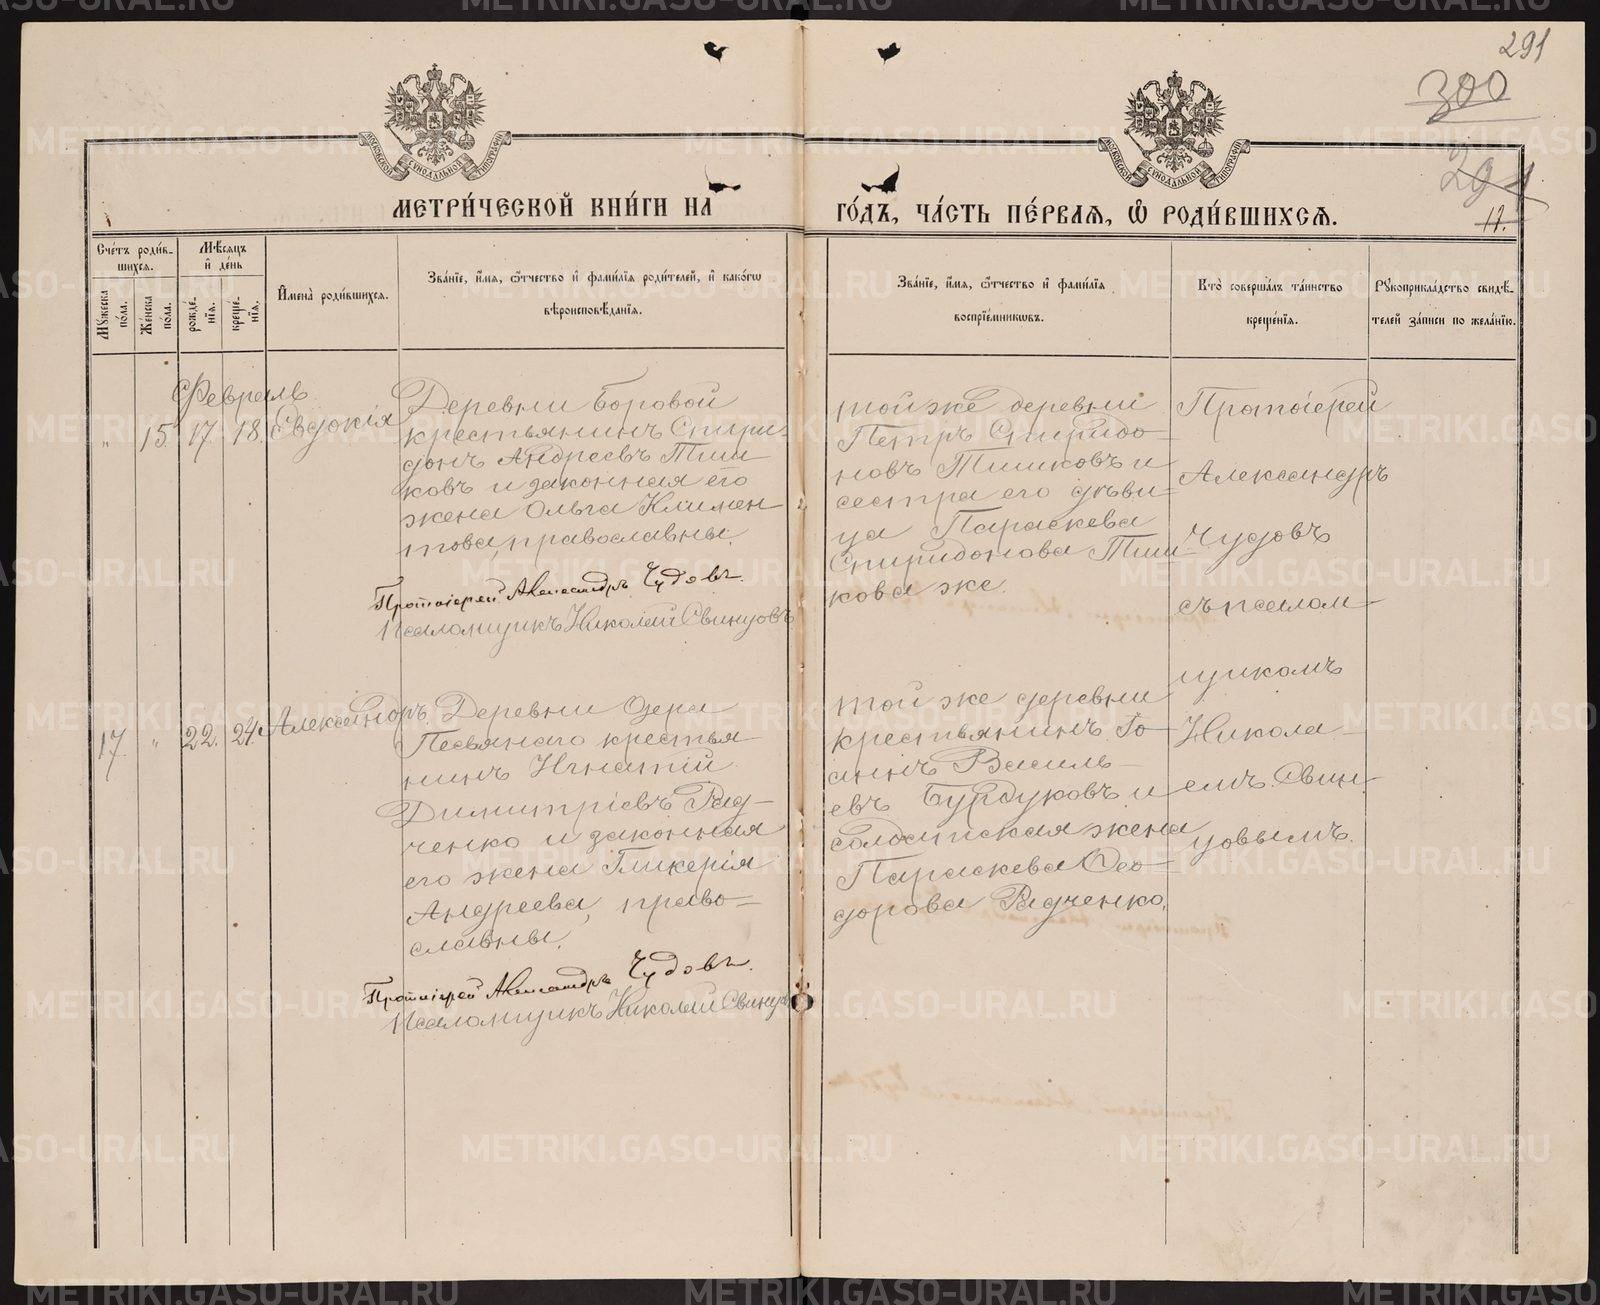 291
300
291
11.
МОСКОВСКОЙ СѴНОДАЛЬНОЙ ТИПОГРАФІИ
МОСКОВСКОЙ СѴНОДАЛЬНОЙ ТИПОГРАФІИ
МЕТРИ́ЧЕСКОЙ КНИ́ГИ НА
ГО́ДЪ, ЧА́СТЬ ПЕ́РВАЯ, Ѽ РОДИ́ВШИХСѦ.
Сче́тъ роди́в-
шихся.
Мѣ́сяцъ
и҆ де́нь
Мꙋ́жеска по́ла.
Же́нска по́ла.
рожде́-
нїѧ.
креще́-
нїѧ.
И҆мена̀ роди́вшихсѧ.
Зва́нїе, и҆́мѧ, ѻ҆́тчество и҆ фами́лїѧ роди́телей, и҆ како́гѡ
вѣроисповѣ́данїѧ.
Зва́нїе, и҆́мѧ, ѻ҆́тчество и҆ фами́лїѧ
воспрїе́мникѡвъ.
Кто̀ соверша́лъ та́инство
креще́нїѧ.
Рꙋкоприкла́дство свидѣ́-
телей за́писи по жела́нїю.
Февраль
„ 15. 17. 18. Евдокія
Деревни Боровой
крестьянинъ Спири-
донъ Андреевъ Тиш-
ковъ и законная его
жена Ольга Климен-
това, православны.
Протоіерей Александръ Чудовъ.
Псаломщикъ Николай Свинцовъ
той же деревни
Петръ Спиридо-
новъ Тишковъ и
сестра его дѣви-
ца Параскева
Спиридонова Тиш-
кова же.
Протоіерей
Александръ
Чудовъ
съ псалом-
щикомъ
Никола-
емъ Свин-
цовымъ.
17. „ 22. 24. Александръ.
Деревни Озера
Песьянаго крестья-
нинъ Игнатій
Димитріевъ Рад-
ченко и законная
его жена Гликерія
Андреева, право-
славны.
Протоіерей Александръ Чудовъ.
Псаломщикъ Николай Свинцовъ
той же деревни
крестьянинъ Іо-
аннъ Василь-
евъ Бурдуковъ и
солдатская жена
Параскева Ѳео-
дорова Радченко.
METRIKI.GASO-URAL.RU